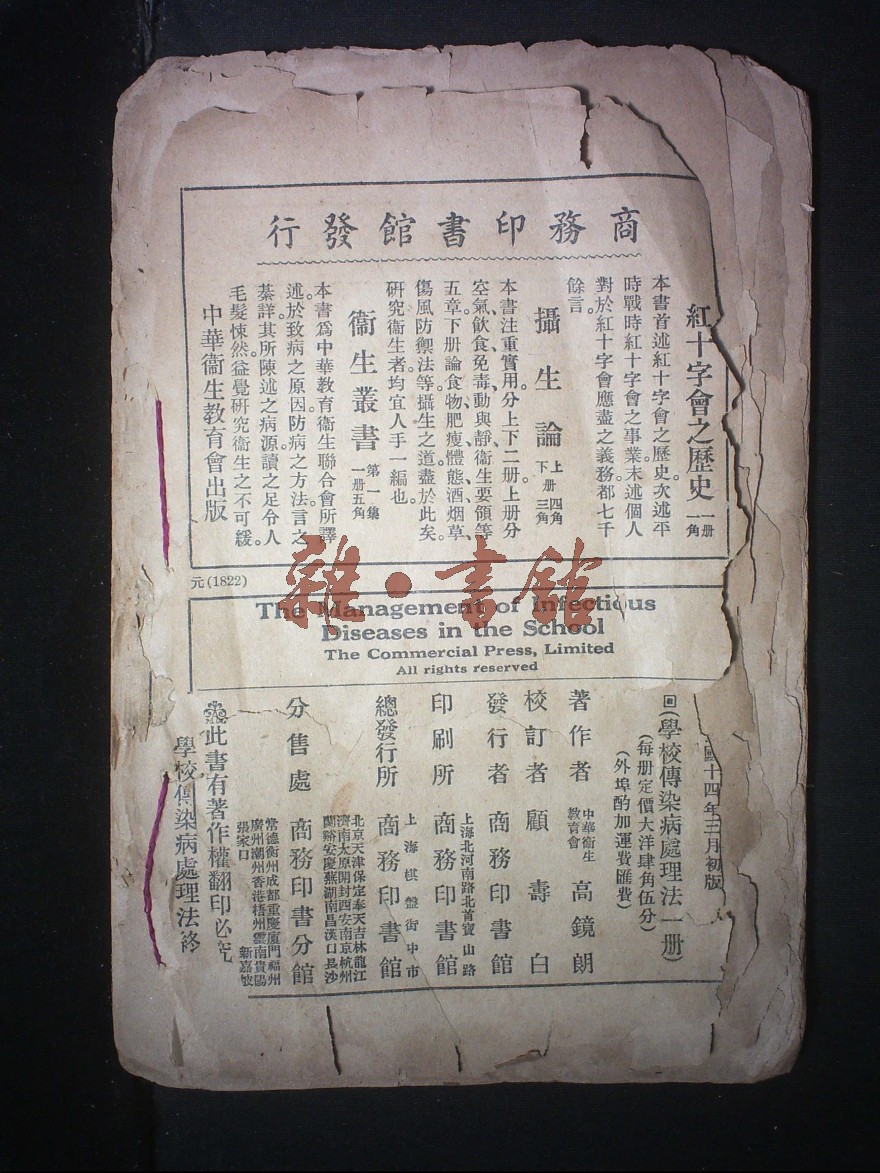 商務印書館發行
紅十字會之歷史 一册一角
本書首述紅十字會之歷史。次述平
時戰時紅十字會之事業。末述個人
對於紅十字會應盡之義務。都七千
餘言。
攝生論 上册四角 下册三角
本書注重實用。分上下二册。上册分
空氣、飲食、免毒、動與靜、衞生要領等
五章。下册論食物、肥瘦、體態、酒、烟草、
傷風防禦法等。攝生之道。盡於此矣。
研究衞生者。均宜人手一編也。
衞生叢書 第一集 一册五角
本書爲中華教育衞生聯合會所譯
述。於致病之原因。防病之方法。言之
綦詳。其所陳述之病源。讀之足令人
毛髮悚然。益覺研究衞生之不可緩。
中華衞生教育會出版
元(1822)
The Management of Infectious
Diseases in the School
The Commercial Press, Limited
All rights reserved
國十四年三月初版
回(學校傳染病處理法一册)
(每册定價大洋肆角伍分)
(外埠酌加運費匯費)
著作者 中華衞生教育會 高鏡朗
校訂者 顧壽白
發行者 商務印書館
上海北河南路北首寶山路
印刷所 商務印書館
上海棋盤街中市
總發行所 商務印書館
北京天津保定奉天吉林龍江
濟南太原開封西安南京杭州
蘭谿安慶蕪湖南昌漢口長沙
分售處 商務印書分館
常德衡州成都重慶廈門福州
廣州潮州香港梧州雲南貴陽
張家口 新嘉坡
此書有著作權翻印必究
學校傳染病處理法終
雜·書館